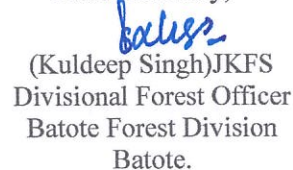 (Kuldeep Singh)JKFS
Divisional Forest Officer
Batote Forest Division
Batote.